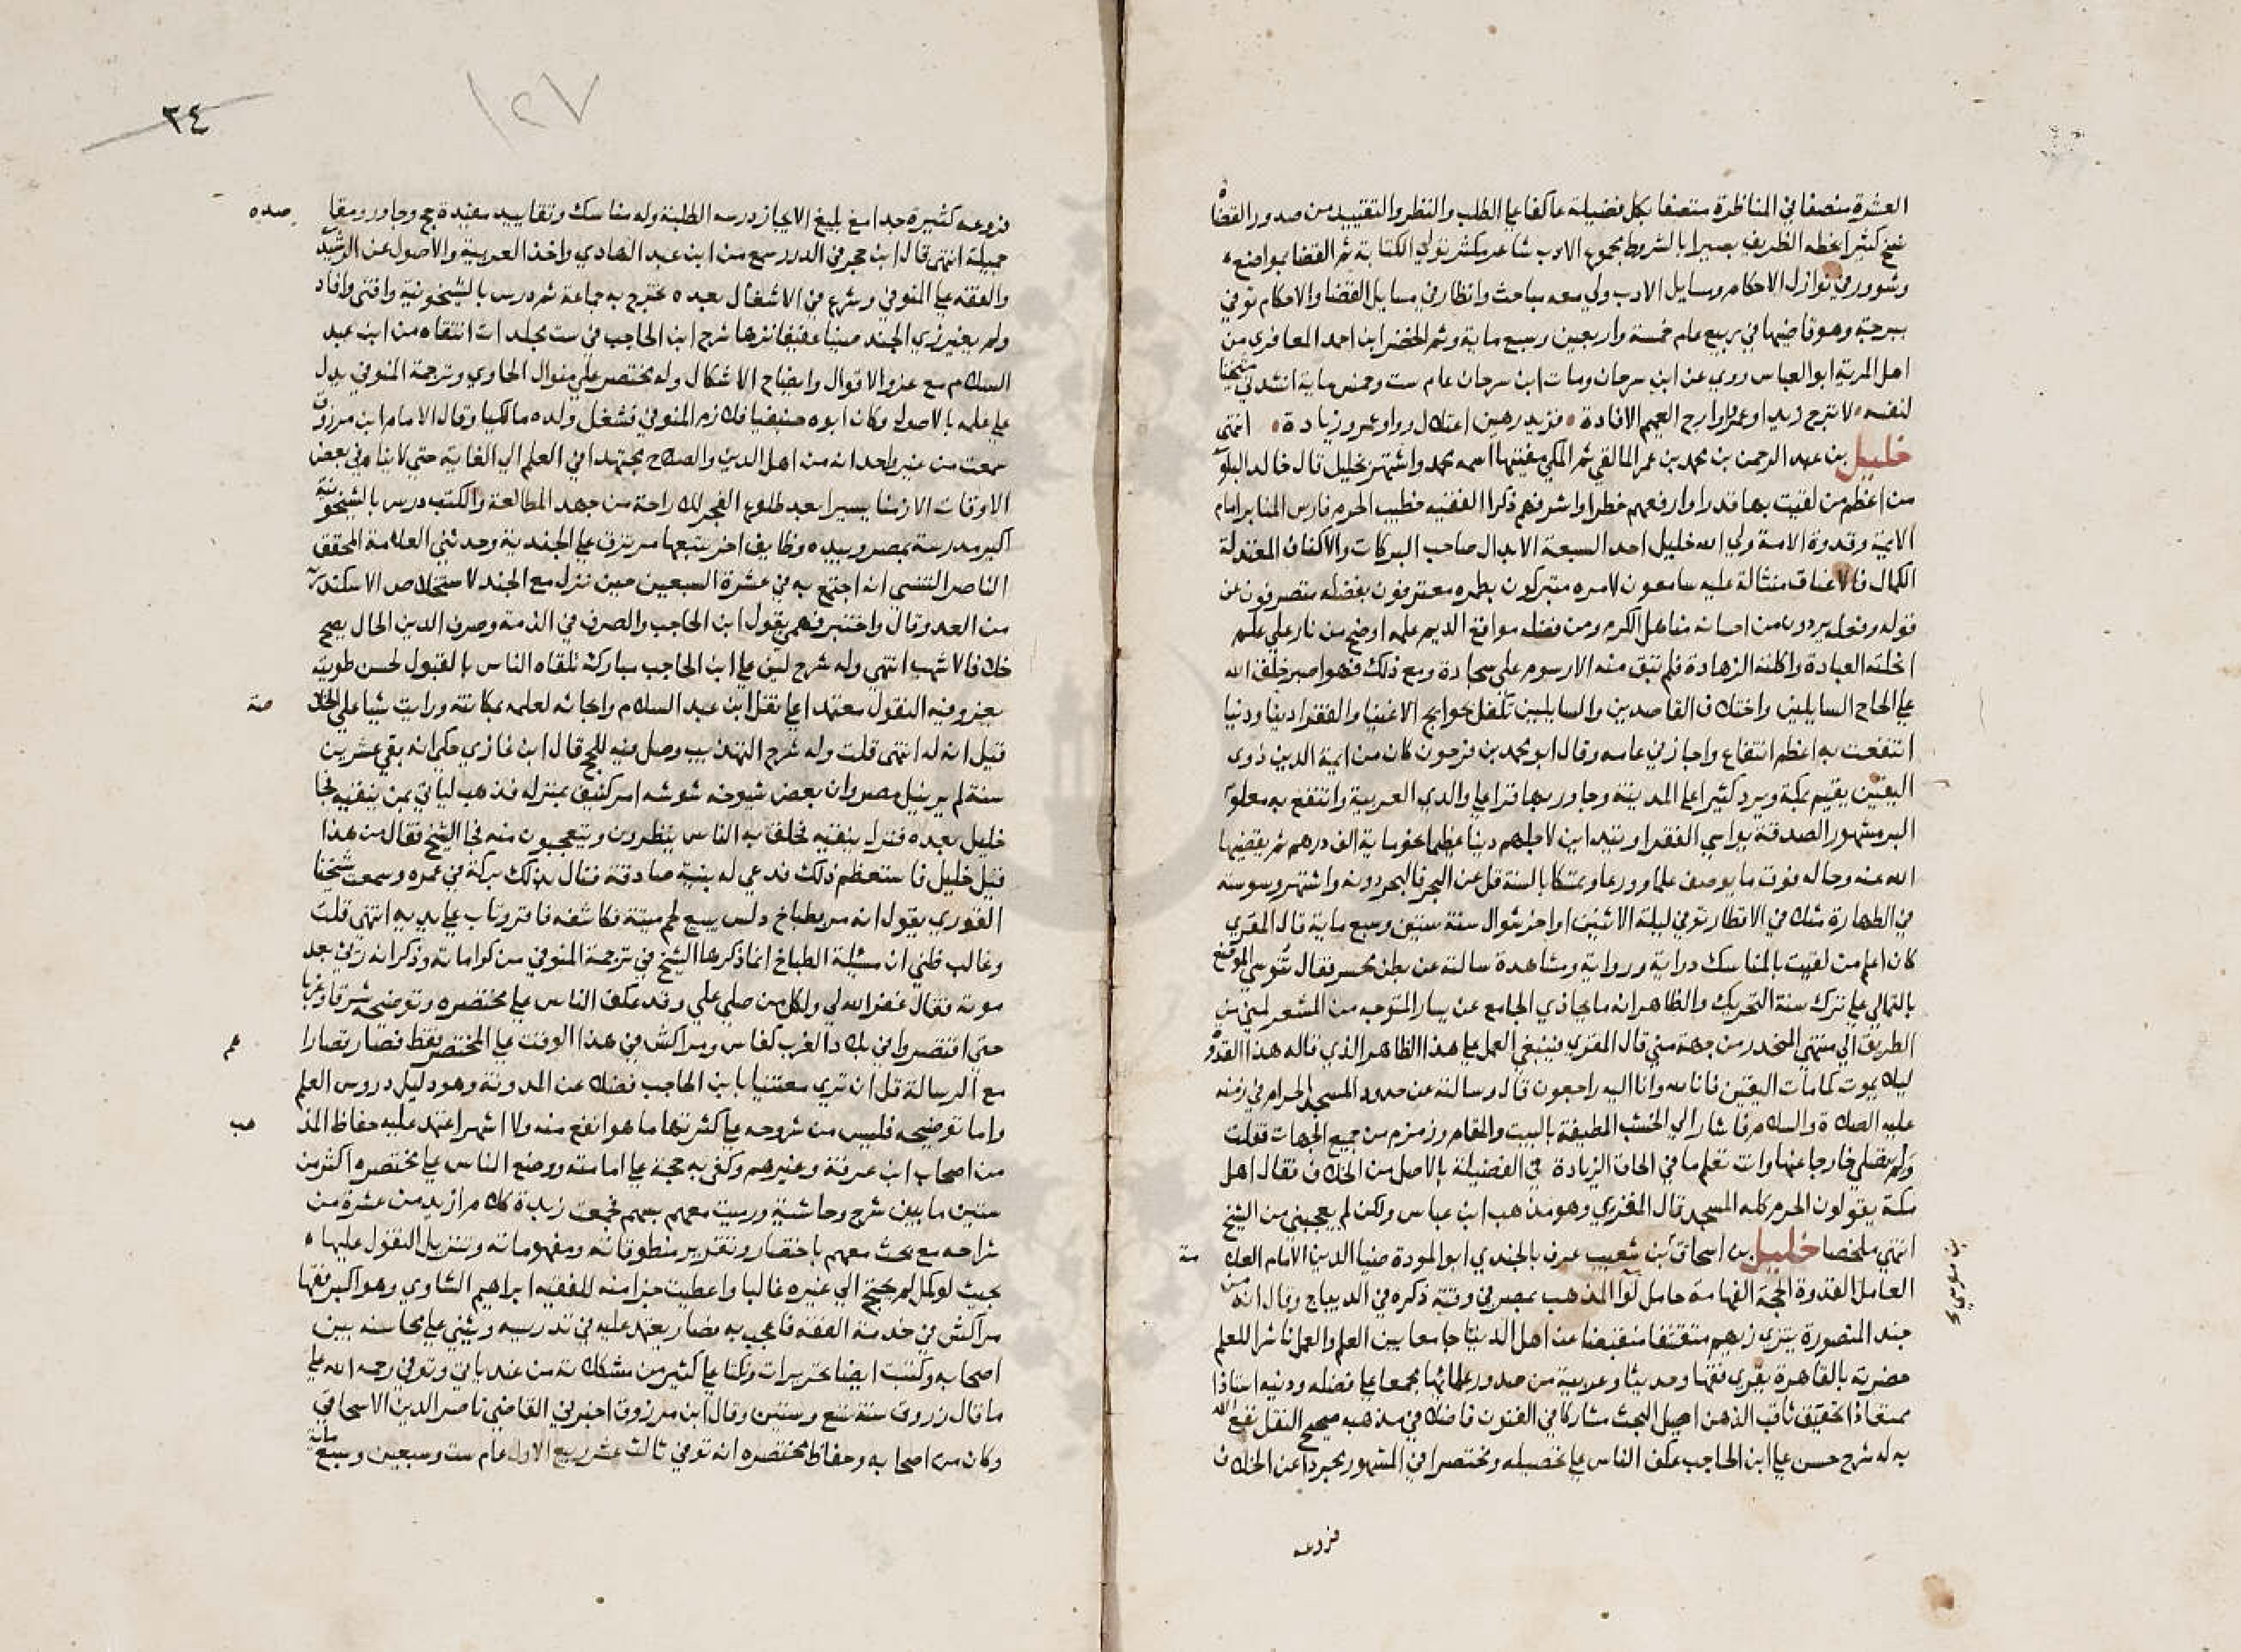 العشرة منصفا في المناظرة متصفا بكل فضيلة عاكفا على الطلب والنظر والتقييد من صدور القضاة
نسخ كثيرا بخطه الظريف بصيرا بالشروط بجموع الادب شاعر مكثر تولي الكتابة ثم القضا بمواضع
وشوور في نوازل الاحكام ومسايل الادب ولي معه مباحث وانظار في مسايل القضا والاحكام توفي
ببرجة وهو قاضيها في ربيع عام خمسة واربعين وسبع ماية وثم الخضر ابن احمد المعافري من
اهل المرية ابو العباس روي عن ابن سرجان ومات ابن سرجان عام ست وخمس ماية انشدني شيخنا
لنفسه لا تبرح زيدا وعمرا وارح العمم الافادة فزيد رهين اعتلال وواو عمرو زيادة انتهى
خليل بن عبد الرحمن بن محمد بن عمر المالقي ثم المكي مفتيها اسمه محمد واشتهر بخليل قال خالد البلوي
من اعظم من لقيت بها قدرا وارفعهم خطرا واشرفهم ذكرا الفقيه خطيب الحرم فارس المنابر امام
الايمة وقدوة الامة ولي الله خليل احد السبعة الابدال صاحب البركات والاكناف المعتدلة
الكمال فالاعناق منثالة عليه سامعون لامره متبركون بطمره معترفون بفضله متصرفون عن
قوله وفعله يردون من احسانه مناهل الكرم ومن فضله مواقع الديم علمه اوضح من نار على علم
انحلته العبادة واكلته الزهادة فلم تبق منه الا رسوم على سجادة ومع ذلك فهو اصبر خلق الله
على الحاح السايلين واختلاف القاصدين والسايلين تكفل بحوايج الاغنيا والفقرا دينا ودنيا
انتفعت به اعظم انتفاع واجازني عامه وقال ابو محمد بن فرحون كان من ايمة الدين ذوي
اليقين يقيم بمكة ويرد كثيرا على المدينة وجاور بها قرا على والدي العربية وانتفع به معلوم
البر مشهور الصدقة يواسي الفقرا ويتداين لاجلهم دينا عظيما نحو ماية الف درهم ثم يقضيها
الله عنه وحاله فوق ما يوصف علما وورعا وتمسكا بالسنة قل عن البحر فالبحر دونه واشتهر وسوسته
في الطهارة مثلا في الاقطار توفي ليلة الاثنين اواخر شوال سنة ستين وسبع ماية قال المقري
كان اعلم من لقيت بالمناسك دراية ورواية ومشاهدة سالته عن بطن محسر فقال نسي الموضع
بالتمالي على ترك سنة التحريك والظاهر انه ما يحاذي الجامع عن يسار المتوجه من المشعر لمني من
الطريق الي منتهي المنحدر من جهة مني قال المقري فينبغي العمل على هذا الظاهر الذي قاله هذا القدوة
ليلا يموت كما مات اليقين فانا لله وانا اليه راجعون قال وسالته عن حدود المسجد الحرام في زمنه
عليه الصلاة والسلام فاشار الي الخشب المطيفة بالبيت والمقام وزمزم من جميع الجهات فقلت
ولم تصلي خارجا عنها وانت تعلم ما في الحاق الزيادة في الفضيلة بالاصل من الخلاف فقال اهل
مكة يقولون الحرم كله المسجد قال المقري وهو مذهب ابن عباس ولكن لم يعجبني من الشيخ
انتهي ملخصا خليل بن اسحاق بن شعيب عرف بالجندي ابو المودة ضيا الدين الامام العلا مة
بن موسى
العامل القدوة الحجة الفهامة حامل لوا المذهب بمصر في وقته ذكره في الديباج وقال انه من
جند المنصورة يتزي زيهم متقشفا منقبضا عن اهل الدنيا جامعا بين العلم والعمل ناشرا للعلم
حضرته بالقاهرة يقري فقها وحديثا وعربية من صدور علمائها مجمعا على فضله ودينه استاذا
ممتعا ذا تحقيق ثاقب الذهن اصيل البحث مشاركا في الفنون فاضلا في مذهبه صحيح النقل نفع الله
به له شرح حسن على ابن الحاجب عكف الناس على تحصيله ومختصرا في المشهور مجردا عن الخلاف
فروعه
١٢٧
٣٤
فروعه كثيرة جدا مع بليغ الايجاز درسه الطلبة وله مناسك وتقاييد مفيدة حج وجاور ومقا صده
جميلة انتهى قال ابن حجر في الدرر سمع من ابن عبد الهادي واخذ العربية والاصول عن الرشيدي
والفقه على المنوفي وشرع في الاشغال بعده تخرج به جماعة ثم درس بالشيخونية وافتى وافاد
ولم يغير زي الجند صينا عفيفا نزها شرح ابن الحاجب في ست مجلدات انتقاه من ابن عبد
السلام مع عزو الاقوال وايضاح الاشكال وله مختصر على منوال الحاوي وترجمة المنوفي يدل
على علمه بالاصول وكان ابوه حنيفيا فلازم المنوفي فشغل ولده مالكيا وقال الامام ابن مرزوق
سمعت من غير واحد انه من اهل الدين والصلاح مجتهدا في العلم الي الغاية حتي لا ينام في بعض
الاوقات الا زمنا يسيرا بعد طلوع الفجر للراحة من جهد المطالعة والكتب درس بالشيخونية
اكبر مدرسة بمصر وبيده وظايف اخر تتبعها مرتزق على الجندية وحدثني العلامة المحقق
الناصر التنسي انه اجتمع به في عشرة السبعين حين نزل مع الجند لاستخلاص الاسكندرية
من العدو قال واختبر فهمي بقول ابن الحاجب والصرف في الذمة وصرف الدين الحال يصح
خلافا لاشهب انتهى وله شرح لين على ابن الحاجب مباركة تلقاه الناس بالقبول لحسن طويته
يعزو فيه النقول معتمدا على نقل ابن عبد السلام وابحاثه لعلمه بمكانته ورايت شيا على الخلا صة
قيل انه له انتهى قلت وله شرح التهذيب وصل فيه للحج قال ابن غازي حكي انه بقي عشرين
سنة لم ير نيل مصر وان بعض شيوخه شوشه امر كنيف بمنزله فذهب لياتي بمن ينقيه فجا
خليل بعده فنزل ينقيه فحلق به الناس ينظرون ويتعجبون منه فجا الشيخ فقال من هذا
قيل خليل فاستعظم ذلك فدعي له بنية صادقة فنال بذلك بركة في عمره وسمعت شيخنا
القوري يقول انه مر بطباخ دلس ببيع لحم ميتة فكاشفه فاقر وتاب على يديه انتهى قلت
وغالب ظني ان مسئلة الطباخ انما ذكرها الشيخ في ترجمة المنوفي من كراماته وذكر انه رئي بعد
موته فقال غفر الله لي ولكل من صلي علي وقد عكف الناس على مختصره وتوضيحه شرقا وغربا
حتي اقتصروا في بلاد الغرب كفاس ومراكش في هذا الوقت على المختصر فقط فصار قصارا هم
مع الرسالة قل ان تري معتنيا بابن الحاجب فضلا عن المدونة وهو دليل دروس العلم
واما توضيحه فليس من شروحه على كثرتها ما هو انفع منه ولا اشهر اعتمد عليه حفاظ المذ هب
من اصحاب ابن عرفة وغيرهم وكفى به حجة على امامته ووضع الناس على مختصره اكثر من
ستين ما بين شرح وحاشية ورميت معهم بسهم فجمعت زبدة كلام ازيد من عشرة من
شراحه مع بحث معهم باختصار وتقدير منطوقاته ومفهوماته وتنزيل النقول عليها
بحيث لو كمل لم يحتج الي غيره غالبا واعطيت جزا منه للفقيه ابراهيم الشاوي وهو اكبر فقها
مراكش في خدمة الفقه فاعجب به فصار يعتمد عليه في تدريسه ويثني على محاسنه بين
اصحابه وكتبت ايضا تحريرات ونكتا على كثير من مشكلاته من عند ياتي وتوفي رحمه الله على
ما قال زروق سنة تسع وستين وقال ابن مرزوق اخبرني القاضي ناصر الدين الاسحاقي
وكان من اصحابه وحفاظ مختصره انه توفي ثالث عشر ربيع الاول عام ست وسبعين وسبع ماية